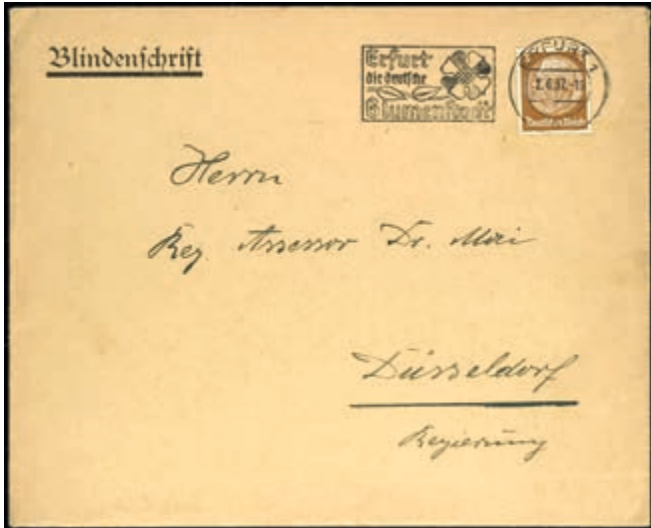 Blindenschrift
Erfurt
die deutsche
Blumenstadt
ERFURT 1
Deutsches Reich
Herrn
Reg. Assessor Dr. Mai
Düsseldorf
Regierung